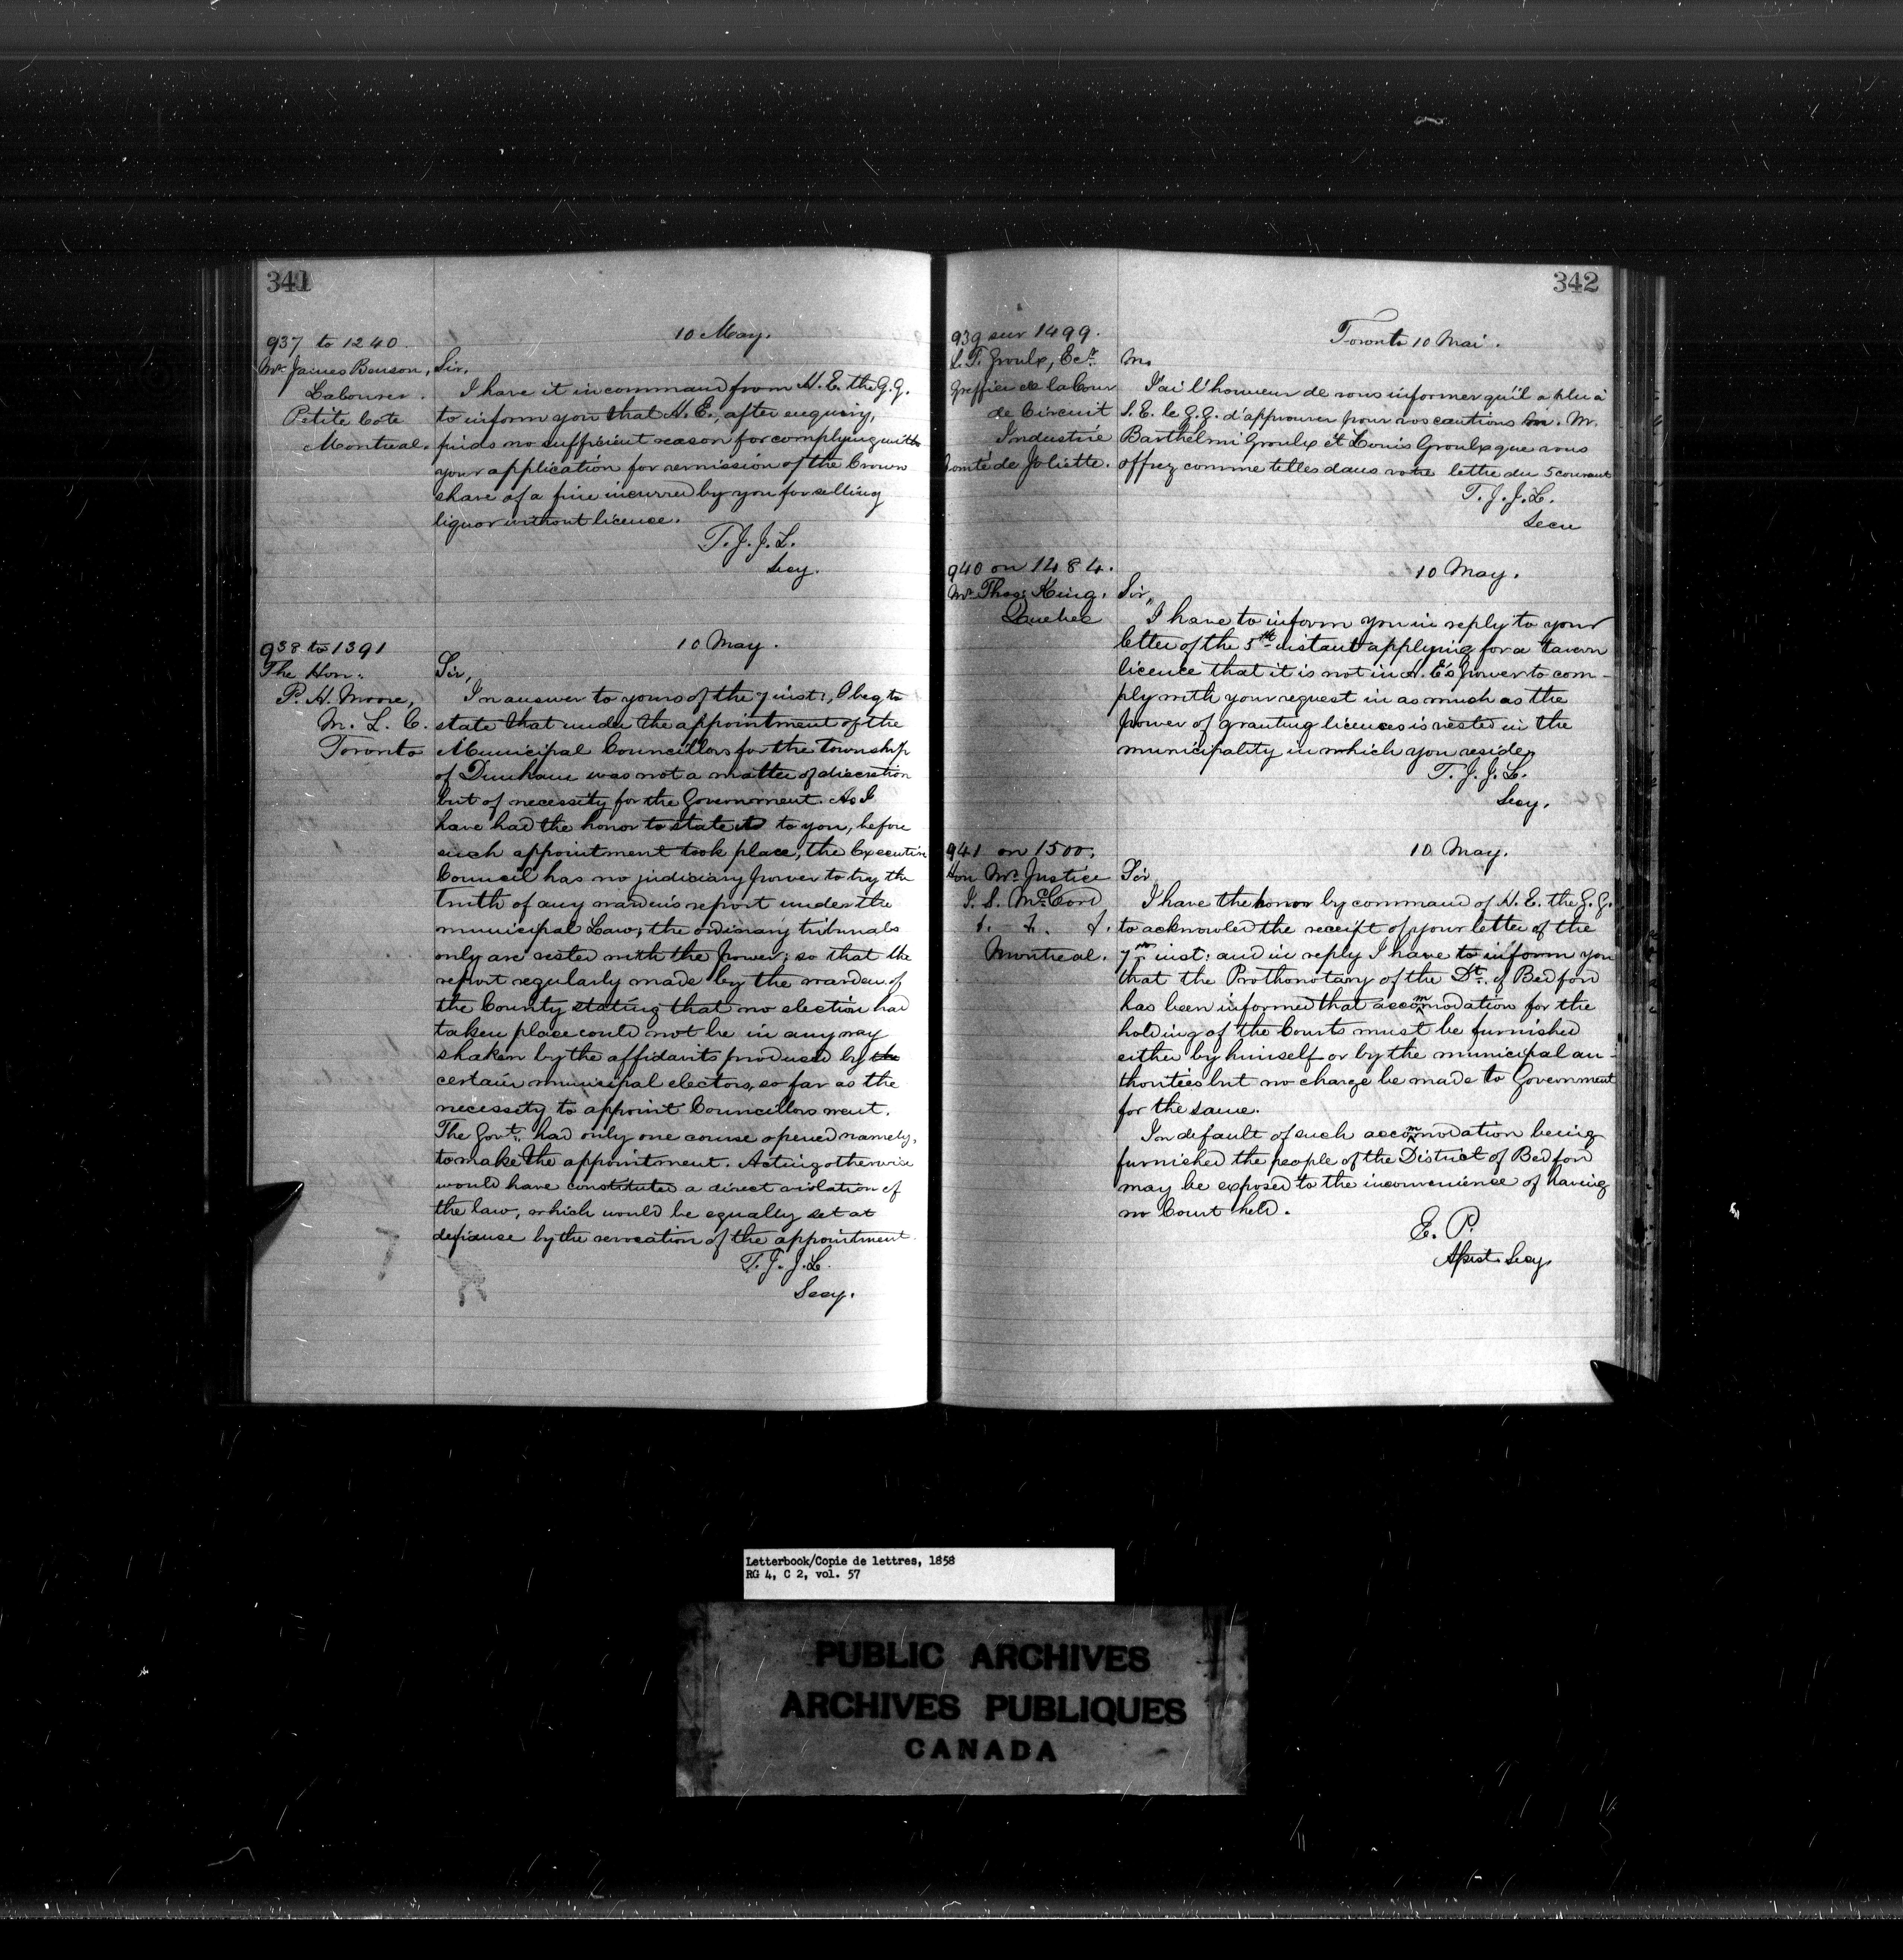 341
937 to 1240
10 May.
Mr. James Benson,
Labourer.
Petite Cote
Montreal.
Sir,
I have it in command from H. E. the G. G.
to inform you that H. E., after enquiry,
finds no sufficient reason for complying with
your application for remission of the Crown
share of a fine incurred by you for selling
liquor without licence.
T. J. J. L.
Secy.
938 to 1391
10 May.
The Hon:
P. H. Moore,
M. L. C.
Toronto
Sir,
In answer to yours of the 7 inst:, I beg to
state that under the appointment of the
Municipal Councillors for the Township
of Dunham was not a matter of discretion
but of necessity for the Government. As I
have had the honor to state to you, before
such appointment took place, the Executive
Council has no judiciary power to try the
truth of any warden's report under the
municipal Law; the ordinary tribunals
only are vested with the power; so that the
report regularly made by the warden of
the County stating that no election had
taken place could not be in any way
shaken by the affidavits produced by the
certain municipal electors, so far as the
necessity to appoint Councillors went.
The Govt. had only one course opened namely,
to make the appointment. Acting otherwise
would have constituted a direct violation of
the law, which would be equally set at
defiance by the revocation of the appointment.
T. J. J. L.
Secy.
342
939 sur 1499.
Toronto 10 Mai.
L. T. Groulx, Ecr.
Greffier de la Cour
de Circuit
Industrie
Comté de Joliette.
M.
J'ai l'honneur de vous informer qu'il a plu à
S. E. le G. G. d'approuver pour vos cautions M.
Barthelmi Groulx et Louis Groulx que vous
offrez comme telles dans votre lettre du 5 courant
T. J. J. L.
Secre
940 on 1484.
10 May.
Mr. Thos. King.
Quebec
Sir,
I have to inform you in reply to your
letter of the 5th instant applying for a tavern
licence that it is not in H. E's power to com-
ply with your request in as much as the
power of granting licences is vested in the
municipality in which you reside,
T. J. J. L.
Secy.
941 on 1500.
10 May.
Hon Mr. Justice
J. S. McCord
Montreal.
Sir
I have the honor by command of H. E. the G. G.
to acknowled the receipt of your letter of the
7th inst: and in reply I have to inform you
that the Prothonotary of the Dt. of Bedford
has been informed that accommodation for the
holding of the Courts must be furnished
either by himself or by the municipal au-
thorities but no charge be made to Government
for the same.
In default of such accommodation being
furnished the people of the District of Bedford
may be exposed to the inconvenience of having
no Court held.
E. P.
Asst. Secy.
Letterbook/Copie de lettres, 1858
RG 4, C 2, vol. 57
PUBLIC ARCHIVES
ARCHIVES PUBLIQUES
CANADA